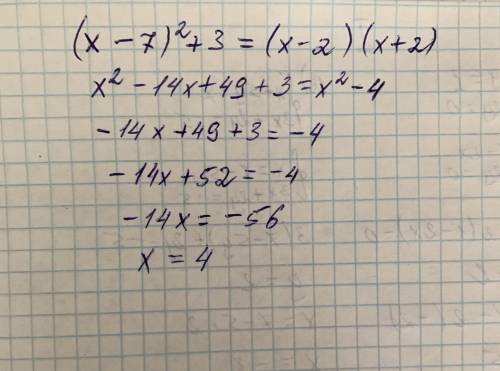 (x - 7)² + 3 = (x - 2)(x + 2)
x² - 14x + 49 + 3 = x² - 4
- 14x + 49 + 3 = - 4
- 14x + 52 = - 4
- 14x = - 56
x = 4